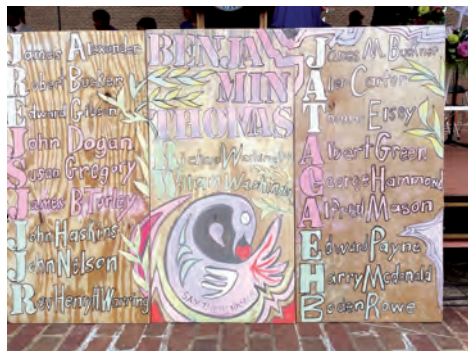 James Alexander
Robert Booker
Edward Gibson
John Dogan
Susan Gregory
James B. Torley
John Haskins
John Nelson
Rev Henry H Warring
BENJA
MIN
THOMAS
Washington
William Washington
SAY THEIR NAMES
James M. Buckner
Carter
Thomas Elsey
Albert Green
George Hammond
Alfred Mason
Edward Payne
Harry Mcdonald
Boden Rowe